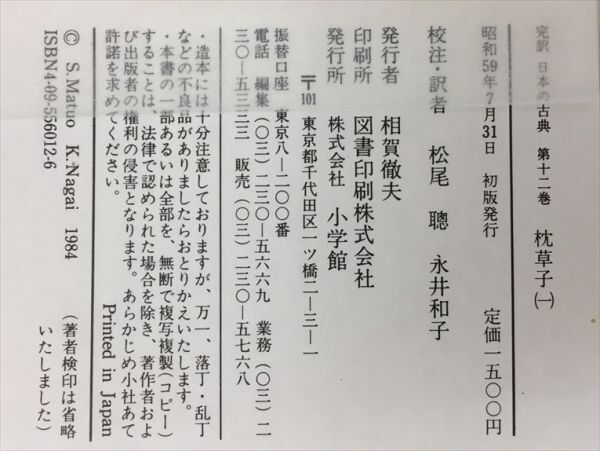 完訳 日本の古典 第十二巻 枕草子(一)
昭和59年7月31日 初版発行 定価一五〇〇円
校注・訳者 松尾 聰 永井和子
発行者 相賀徹夫
印刷所 図書印刷株式会社
発行所 株式会社 小学館
〒101 東京都千代田区一ツ橋二―三―一
振替口座 東京八―二〇〇番
電話 編集(〇三)二三〇―五六六九 業務(〇三)二
三〇―五三三三 販売(〇三)二三〇―五七六八
・造本には十分注意しておりますが、万一、落丁・乱丁
などの不良品がありましたらおとりかえいたします。
・本書の一部あるいは全部を、無断で複写複製(コピー)
することは、法律で認められた場合を除き、著作者およ
び出版者の権利の侵害となります。あらかじめ小社あて
許諾を求めてください。 Printed in Japan
© S.Matuo K.Nagai 1984 (著者検印は省略
ISBN4-09-556012-6 いたしました)